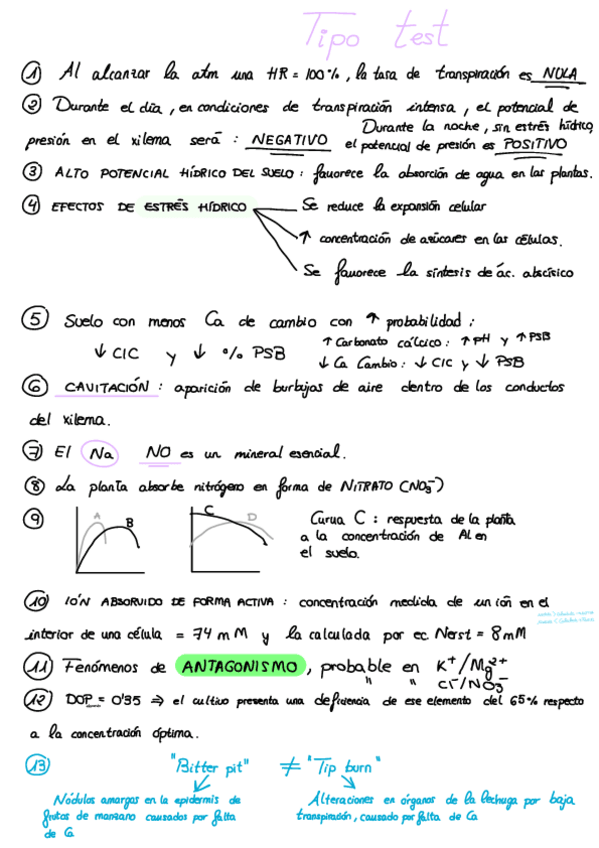 Tipo test
① Al alcanzar la atm una HR = 100%, la tasa de transpiración es NULA
② Durante el día, en condiciones de transpiración intensa, el potencial de
presión en el xilema será : NEGATIVO
Durante la noche, sin estrés hídrico,
el potencial de presión es POSITIVO
③ ALTO POTENCIAL HÍDRICO DEL SUELO : favorece la absorción de agua en las plantas.
④ EFECTOS DE ESTRÉS HÍDRICO
Se reduce la expansión celular
↑ concentración de azúcares en las células.
Se favorece la síntesis de ác. abscísico
⑤ Suelo con menos Ca de cambio con ↑ probabilidad :
↓ CIC y ↓ % PSB
↑ Carbonato cálcico : ↑ pH y ↑ PSB
↓ Ca Cambio : ↓ CIC y ↓ PSB
⑥ CAVITACIÓN : aparición de burbujas de aire dentro de los conductos
del xilema.
⑦ El Na NO es un mineral esencial.
⑧ La planta absorbe nitrógeno en forma de NITRATO (NO₃⁻)
⑨ A B C D
Curva C : respuesta de la planta
a la concentración de Al en
el suelo.
⑩ IÓN ABSORVIDO DE FORMA ACTIVA : concentración medida de un ión en el
interior de una célula = 74 mM y la calculada por ec. Nerst = 8 mM
⑪ Fenómenos de ANTAGONISMO, probable en K⁺/Mg²⁺
" " Cl⁻/NO₃⁻
⑫ DOP = 0'35 ⇒ el cultivo presenta una deficiencia de ese elemento del 65% respecto
a la concentración óptima.
⑬ "Bitter pit" ≠ "Tip burn"
Nódulos amargas en la epidermis de
frutos de manzano causados por falta
de Ca
Alteraciones en órganos de la lechuga por baja
transpiración, causado por falta de Ca